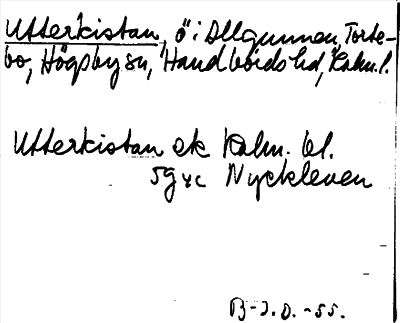 Utterkistan, ö i Allgunnen, Torte-
bo, Högsby sn, Handbörds hd, Kalm. l.
Utterkistan ek Kalm. bl.
5g4c Nyckleven
B-J.D. -55.